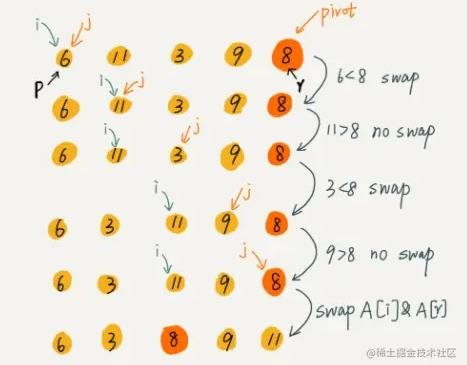 pivot
i j
6 11 3 9 8
p r
6<8 swap
i j
6 11 3 9 8
11>8 no swap
i j
6 11 3 9 8
3<8 swap
i j
6 3 11 9 8
9>8 no swap
i j
6 3 11 9 8
swap A[i]&A[r]
6 3 8 9 11
@稀土掘金技术社区